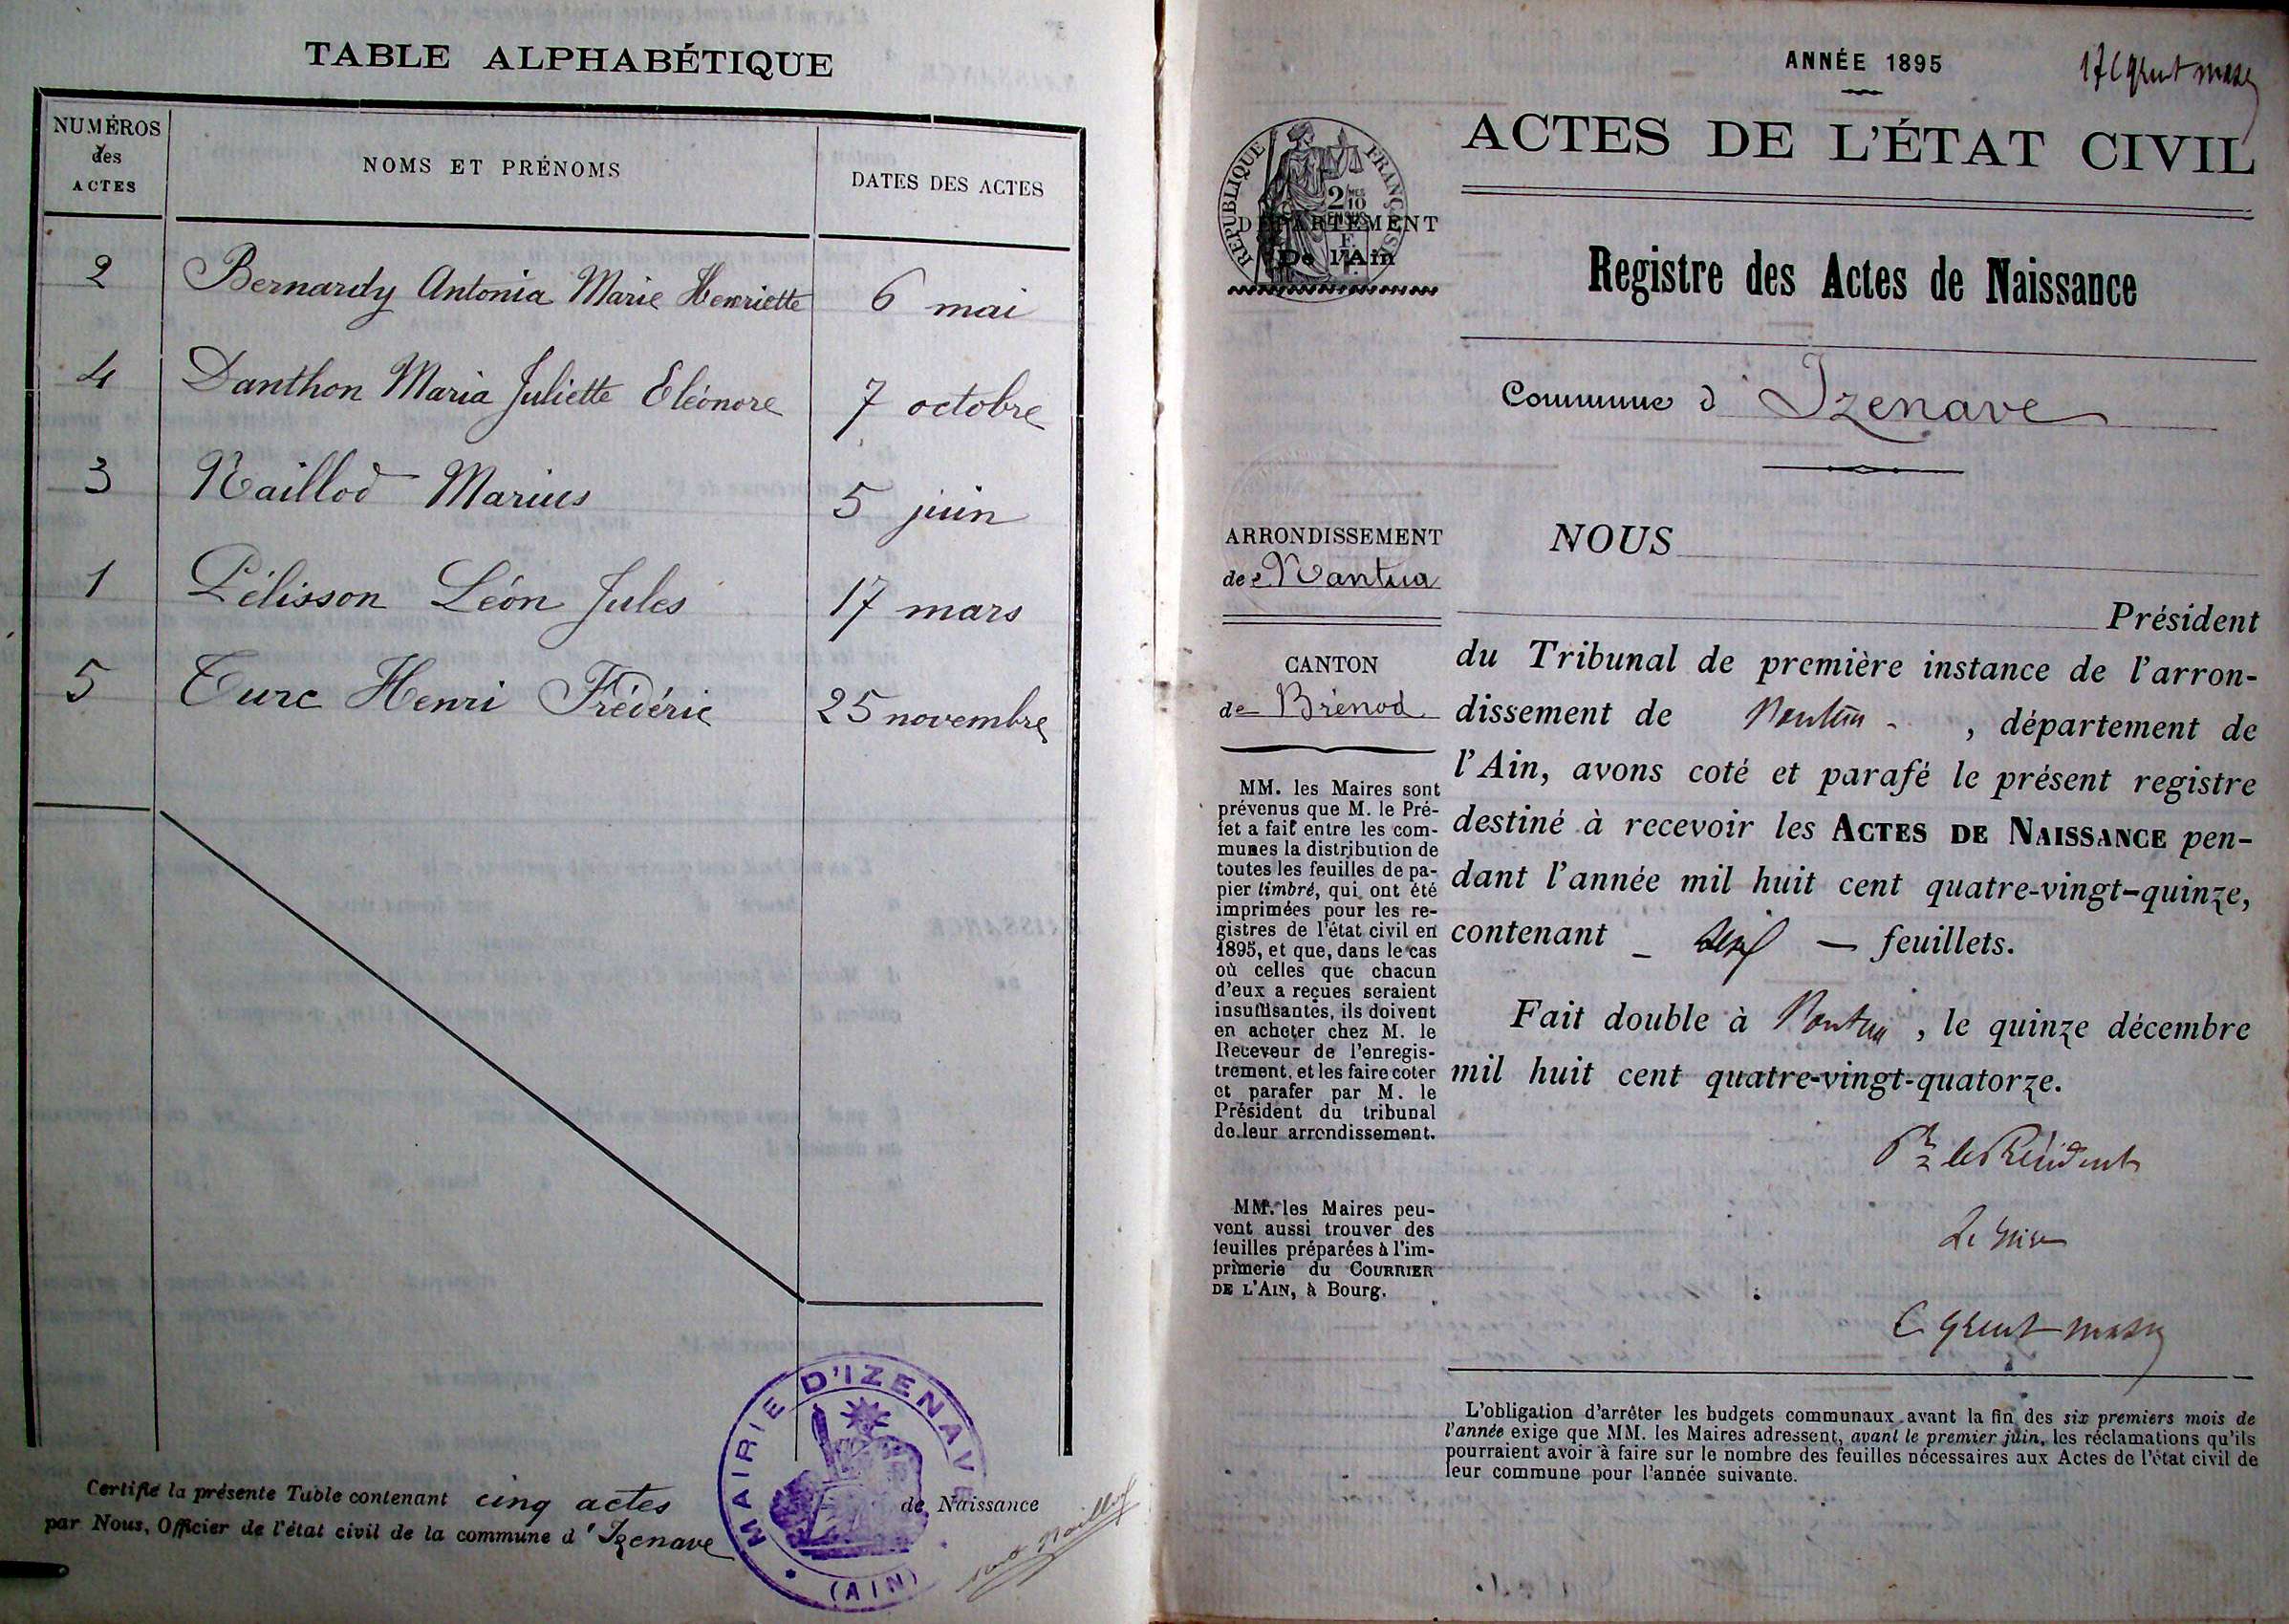 TABLE ALPHABÉTIQUE
NUMÉROS des ACTES
NOMS ET PRÉNOMS
DATES DES ACTES
2 Bernardy Antonia Marie Henriette 6 mai
4 Danthon Maria Juliette Eléonore 7 octobre
3 Naillod Marius 5 juin
1 Pélisson Léon Jules 17 mars
5 Turc Henri Frédéric 25 novembre
Certifié la présente Table contenant cinq actes de Naissance
par Nous, Officier de l'état civil de la commune d'Izenave
MAIRIE D'IZENAVE
(AIN)
Naillod
ANNÉE 1895
ACTES DE L'ÉTAT CIVIL
RÉPUBLIQUE FRANÇAISE
2/10 EN SUS
DÉPARTEMENT
De l'Ain
Registre des Actes de Naissance
Commune d'Izenave
ARRONDISSEMENT
de Nantua
CANTON
de Brénod
MM. les Maires sont
prévenus que M. le Pré-
fet a fait entre les com-
munes la distribution de
toutes les feuilles de pa-
pier timbré, qui ont été
imprimées pour les re-
gistres de l'état civil en
1895, et que, dans le cas
où celles que chacun
d'eux a reçues seraient
insuffisantes, ils doivent
en acheter chez M. le
Receveur de l'enregis-
trement, et les faire coter
et parafer par M. le
Président du tribunal
de leur arrondissement.
MM. les Maires peu-
vent aussi trouver des
feuilles préparées à l'im-
primerie du COURRIER
DE L'AIN, à Bourg.
NOUS
Président
du Tribunal de première instance de l'arron-
dissement de Nantua, département de
l'Ain, avons coté et parafé le présent registre
destiné à recevoir les ACTES DE NAISSANCE pen-
dant l'année mil huit cent quatre-vingt-quinze,
contenant — — feuillets.
Fait double à Nantua, le quinze décembre
mil huit cent quatre-vingt-quatorze.
Pr le Président
L'obligation d'arrêter les budgets communaux avant la fin des six premiers mois de
l'année exige que MM. les Maires adressent, avant le premier juin, les réclamations qu'ils
pourraient avoir à faire sur le nombre des feuilles nécessaires aux Actes de l'état civil de
leur commune pour l'année suivante.